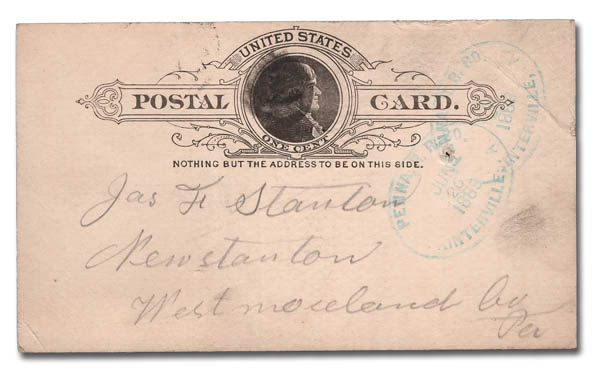 UNITED STATES
POSTAL CARD.
ONE CENT
NOTHING BUT THE ADDRESS TO BE ON THIS SIDE.
PENNA. R. R. CO.
JUN
188
Jas F Stanton
Newstanton
Westmoreland Co
Pa